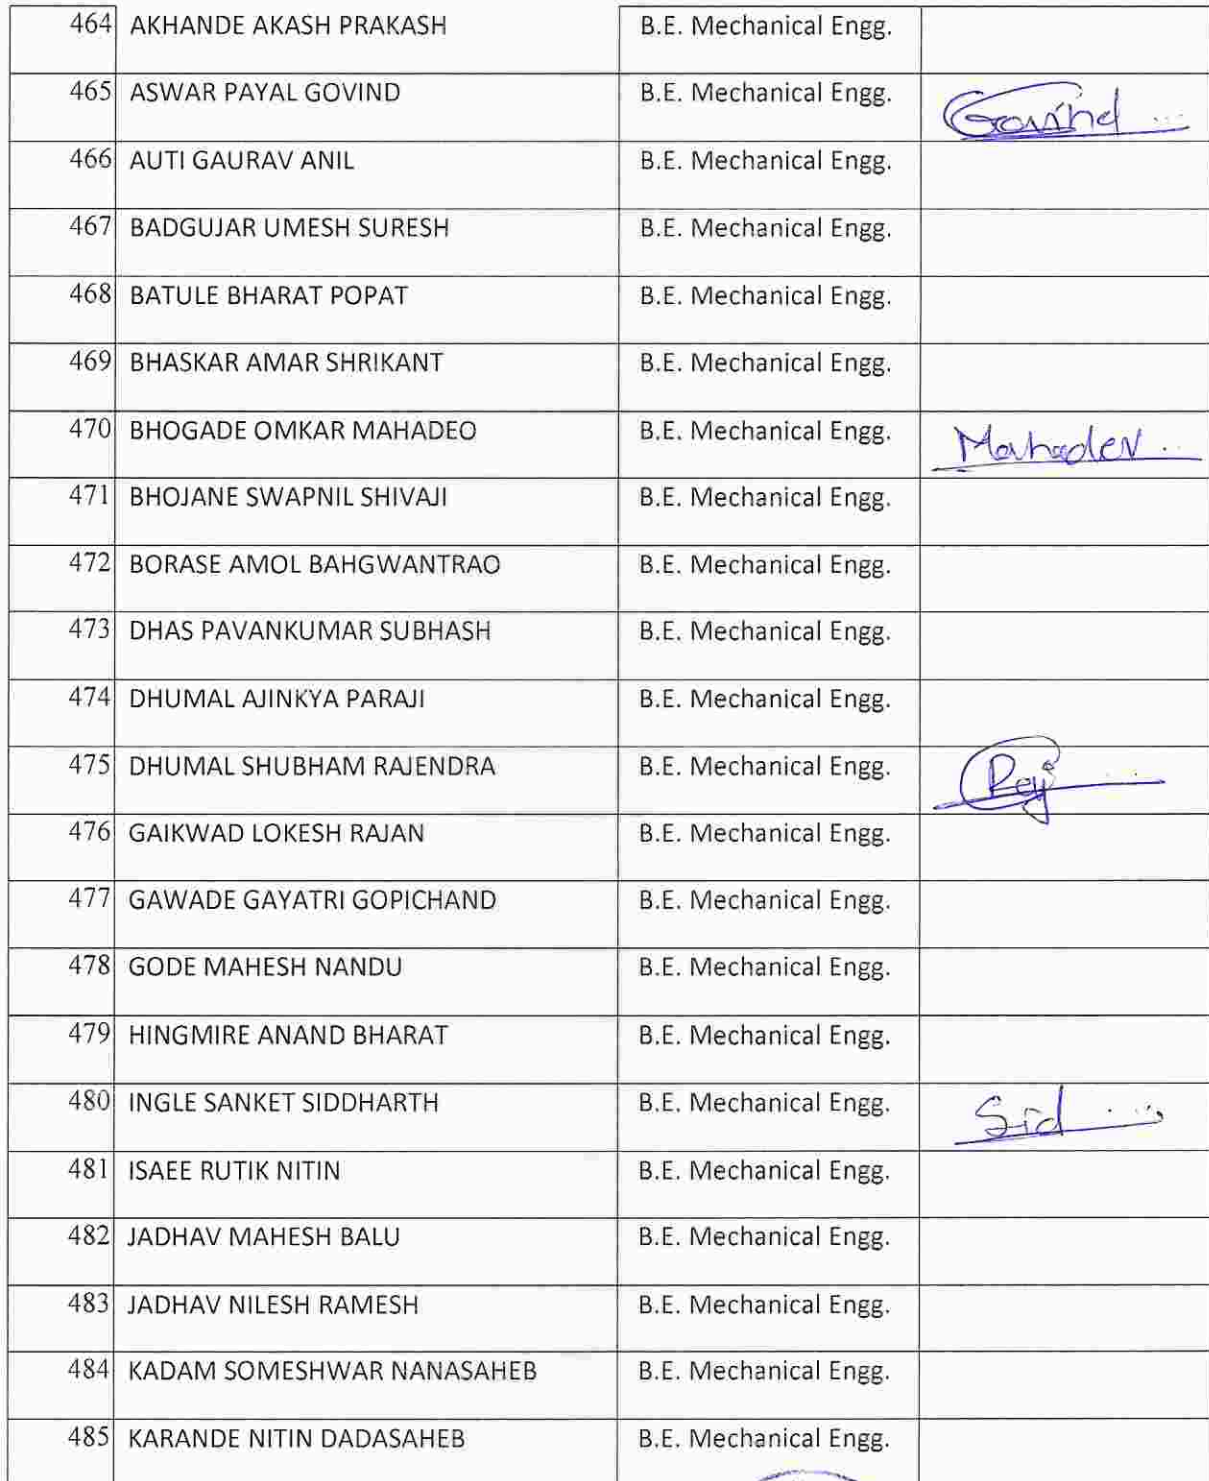 464 AKHANDE AKASH PRAKASH B.E. Mechanical Engg.
465 ASWAR PAYAL GOVIND B.E. Mechanical Engg. Govind
466 AUTI GAURAV ANIL B.E. Mechanical Engg.
467 BADGUJAR UMESH SURESH B.E. Mechanical Engg.
468 BATULE BHARAT POPAT B.E. Mechanical Engg.
469 BHASKAR AMAR SHRIKANT B.E. Mechanical Engg.
470 BHOGADE OMKAR MAHADEO B.E. Mechanical Engg. Mahadev
471 BHOJANE SWAPNIL SHIVAJI B.E. Mechanical Engg.
472 BORASE AMOL BAHGWANTRAO B.E. Mechanical Engg.
473 DHAS PAVANKUMAR SUBHASH B.E. Mechanical Engg.
474 DHUMAL AJINKYA PARAJI B.E. Mechanical Engg.
475 DHUMAL SHUBHAM RAJENDRA B.E. Mechanical Engg. Raj
476 GAIKWAD LOKESH RAJAN B.E. Mechanical Engg.
477 GAWADE GAYATRI GOPICHAND B.E. Mechanical Engg.
478 GODE MAHESH NANDU B.E. Mechanical Engg.
479 HINGMIRE ANAND BHARAT B.E. Mechanical Engg.
480 INGLE SANKET SIDDHARTH B.E. Mechanical Engg. Sid
481 ISAEE RUTIK NITIN B.E. Mechanical Engg.
482 JADHAV MAHESH BALU B.E. Mechanical Engg.
483 JADHAV NILESH RAMESH B.E. Mechanical Engg.
484 KADAM SOMESHWAR NANASAHEB B.E. Mechanical Engg.
485 KARANDE NITIN DADASAHEB B.E. Mechanical Engg.